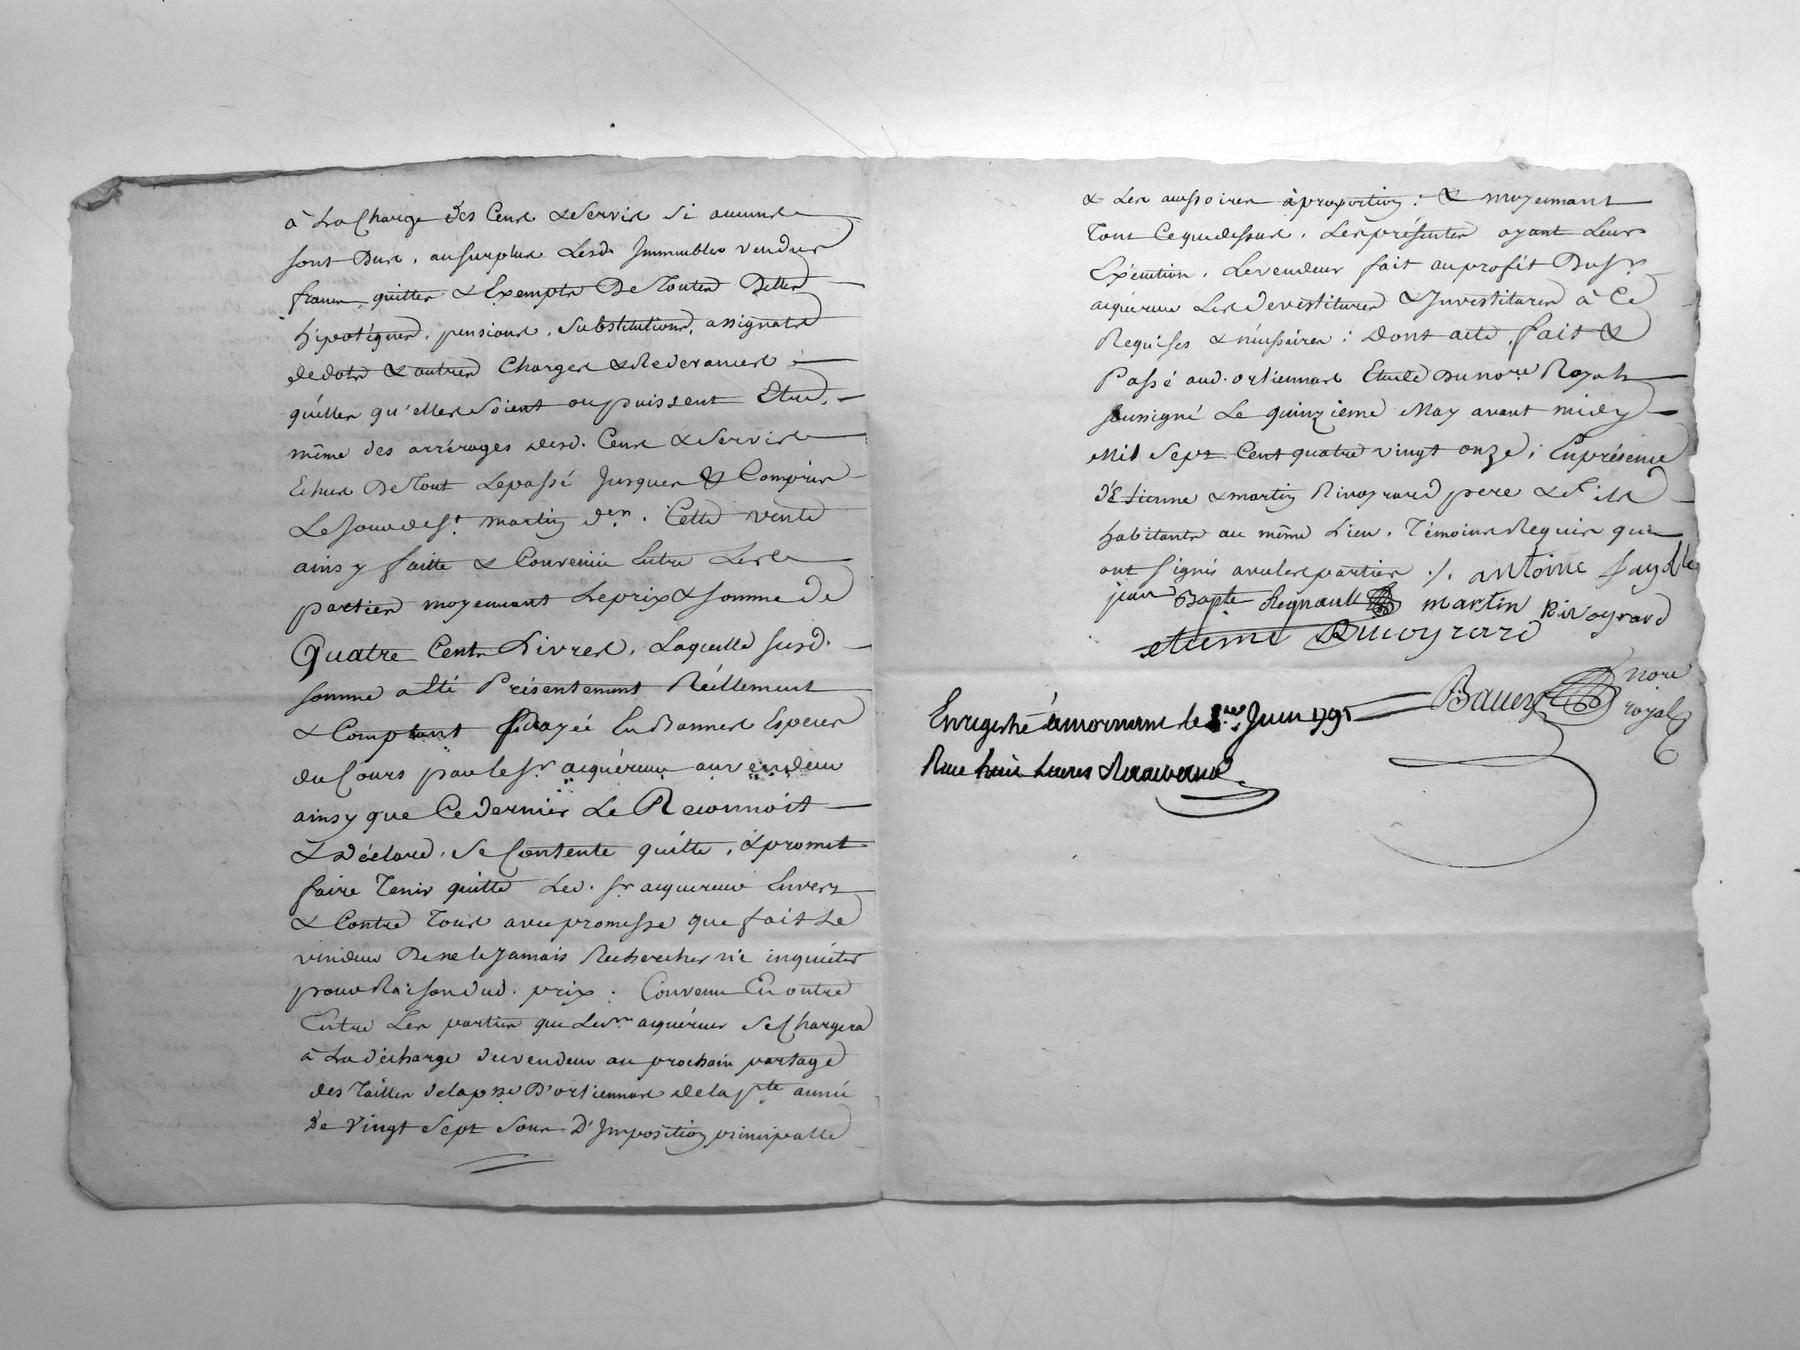 à La Charge des Cens & Servis si aucuns
sont Dus, au surplus Lesd. Immeubles vendus
francs quittes & Exempts De Toutes Dettes
hipotéques, pensions, Substitutions, assignats
de dots & autres Charges & Redevances
quelles qu'elles soient ou puissent Etre,
même des arrérages desd. Cens & Servis
Echus De Tout Le passé Jusques & Compris
Le Jour de St. martin dern. Cette vente
ainsy faitte & Convenüe Entre Les
parties moyennant Le prix & somme de
Quatre Cents Livres, Laquelle susd.
somme a Eté Présentement Réellement
& Comptant payée En Bonnes Especes
du Cours par le Sr. acquéreur au vendeur
ainsy que Ce dernier Le Reconnoit
& Déclare, Se Contente quitte, & promet
faire Tenir quitte Led. Sr. acquereur Envers
& Contre Tous avec promesse que fait Le
vendeur De ne le Jamais Rechercher ni inquiéter
pour Raison dud. prix : Convenu En outre
Entre Les parties que Led. Sr. acquéreur Se Chargera
à La décharge du vendeur au prochain partage
des Tailles de la psse D'ortiennas de la pnte année
de vingt Sept Sous D'Imposition principalle
& Les accessoires à proportion : & moyennant
Tout Ce que dessus, Les présentes ayant Leur
Exécution, Le vendeur fait au profit Du Sr.
acquereur Les devestitures & Investitures à Ce
Requises & nécessaires : Dont acte, fait &
Passé aud. ortiennas Etude Du nore Royal
soussigné Le quinzieme May avant midy
Mil Sept Cent quatre vingt onze ; En présence
d'Etienne & martin Rivoyrard pere & fils
habitants au même Lieu, Témoins Requis qui
ont signés avec les parties ./. antoine fayolle
jean Bapte Regnault martin Rivoyrard
etiene Rivoyrard
Enregistré à mornant le 1er Juin 1791 nore
royal